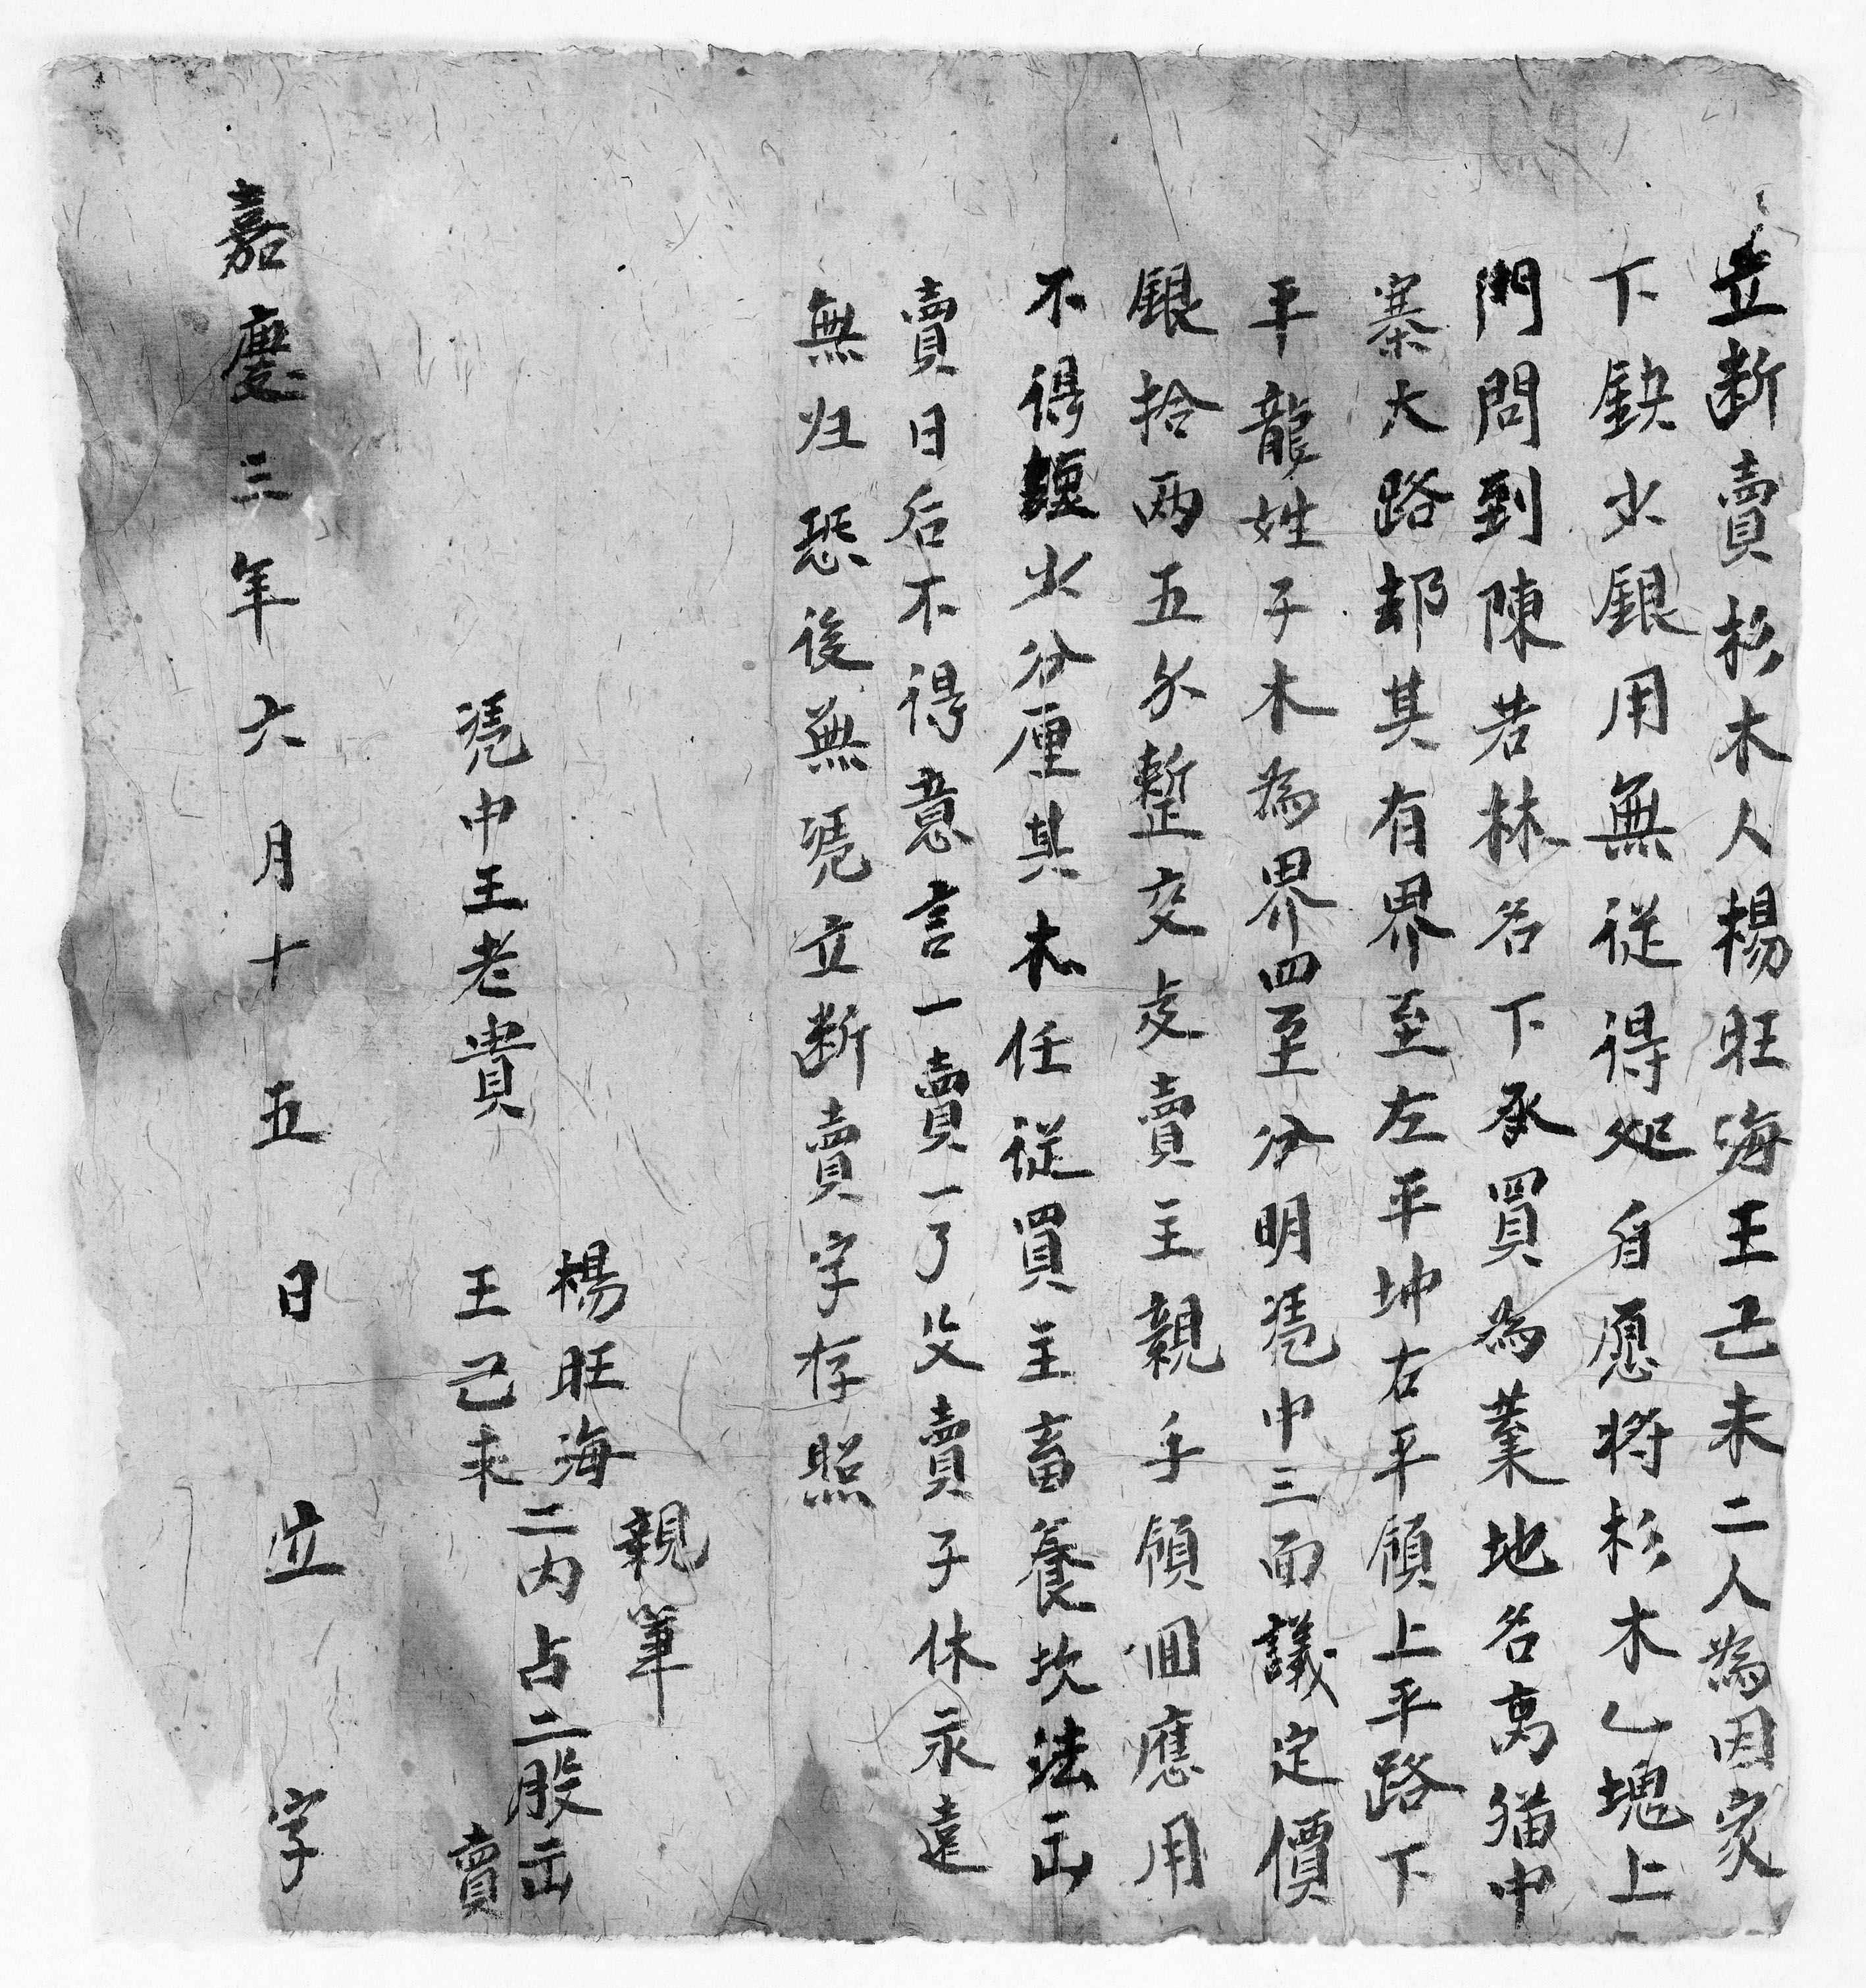 立断賣杉木人楊旺海王己未二人為因家
下缺少銀用無從得处自愿將杉木乙塊上
門問到陳若林名下承買為業地名高猫中
寨大路却其有界至左平坤右平領上平路下
平龍姓子木為界四至分明凴中三面議定價
銀拾兩五分整交足賣主親手領回應用
不得短少分厘其木任從買主畜養坎法出
賣日后不得意言一賣一了父賣子休永遠
無归恐後無凴立断賣字存照
親筆
楊旺海
二内占二股出
賣
王己未
凴中王老貴
嘉慶三年六月十五日立字